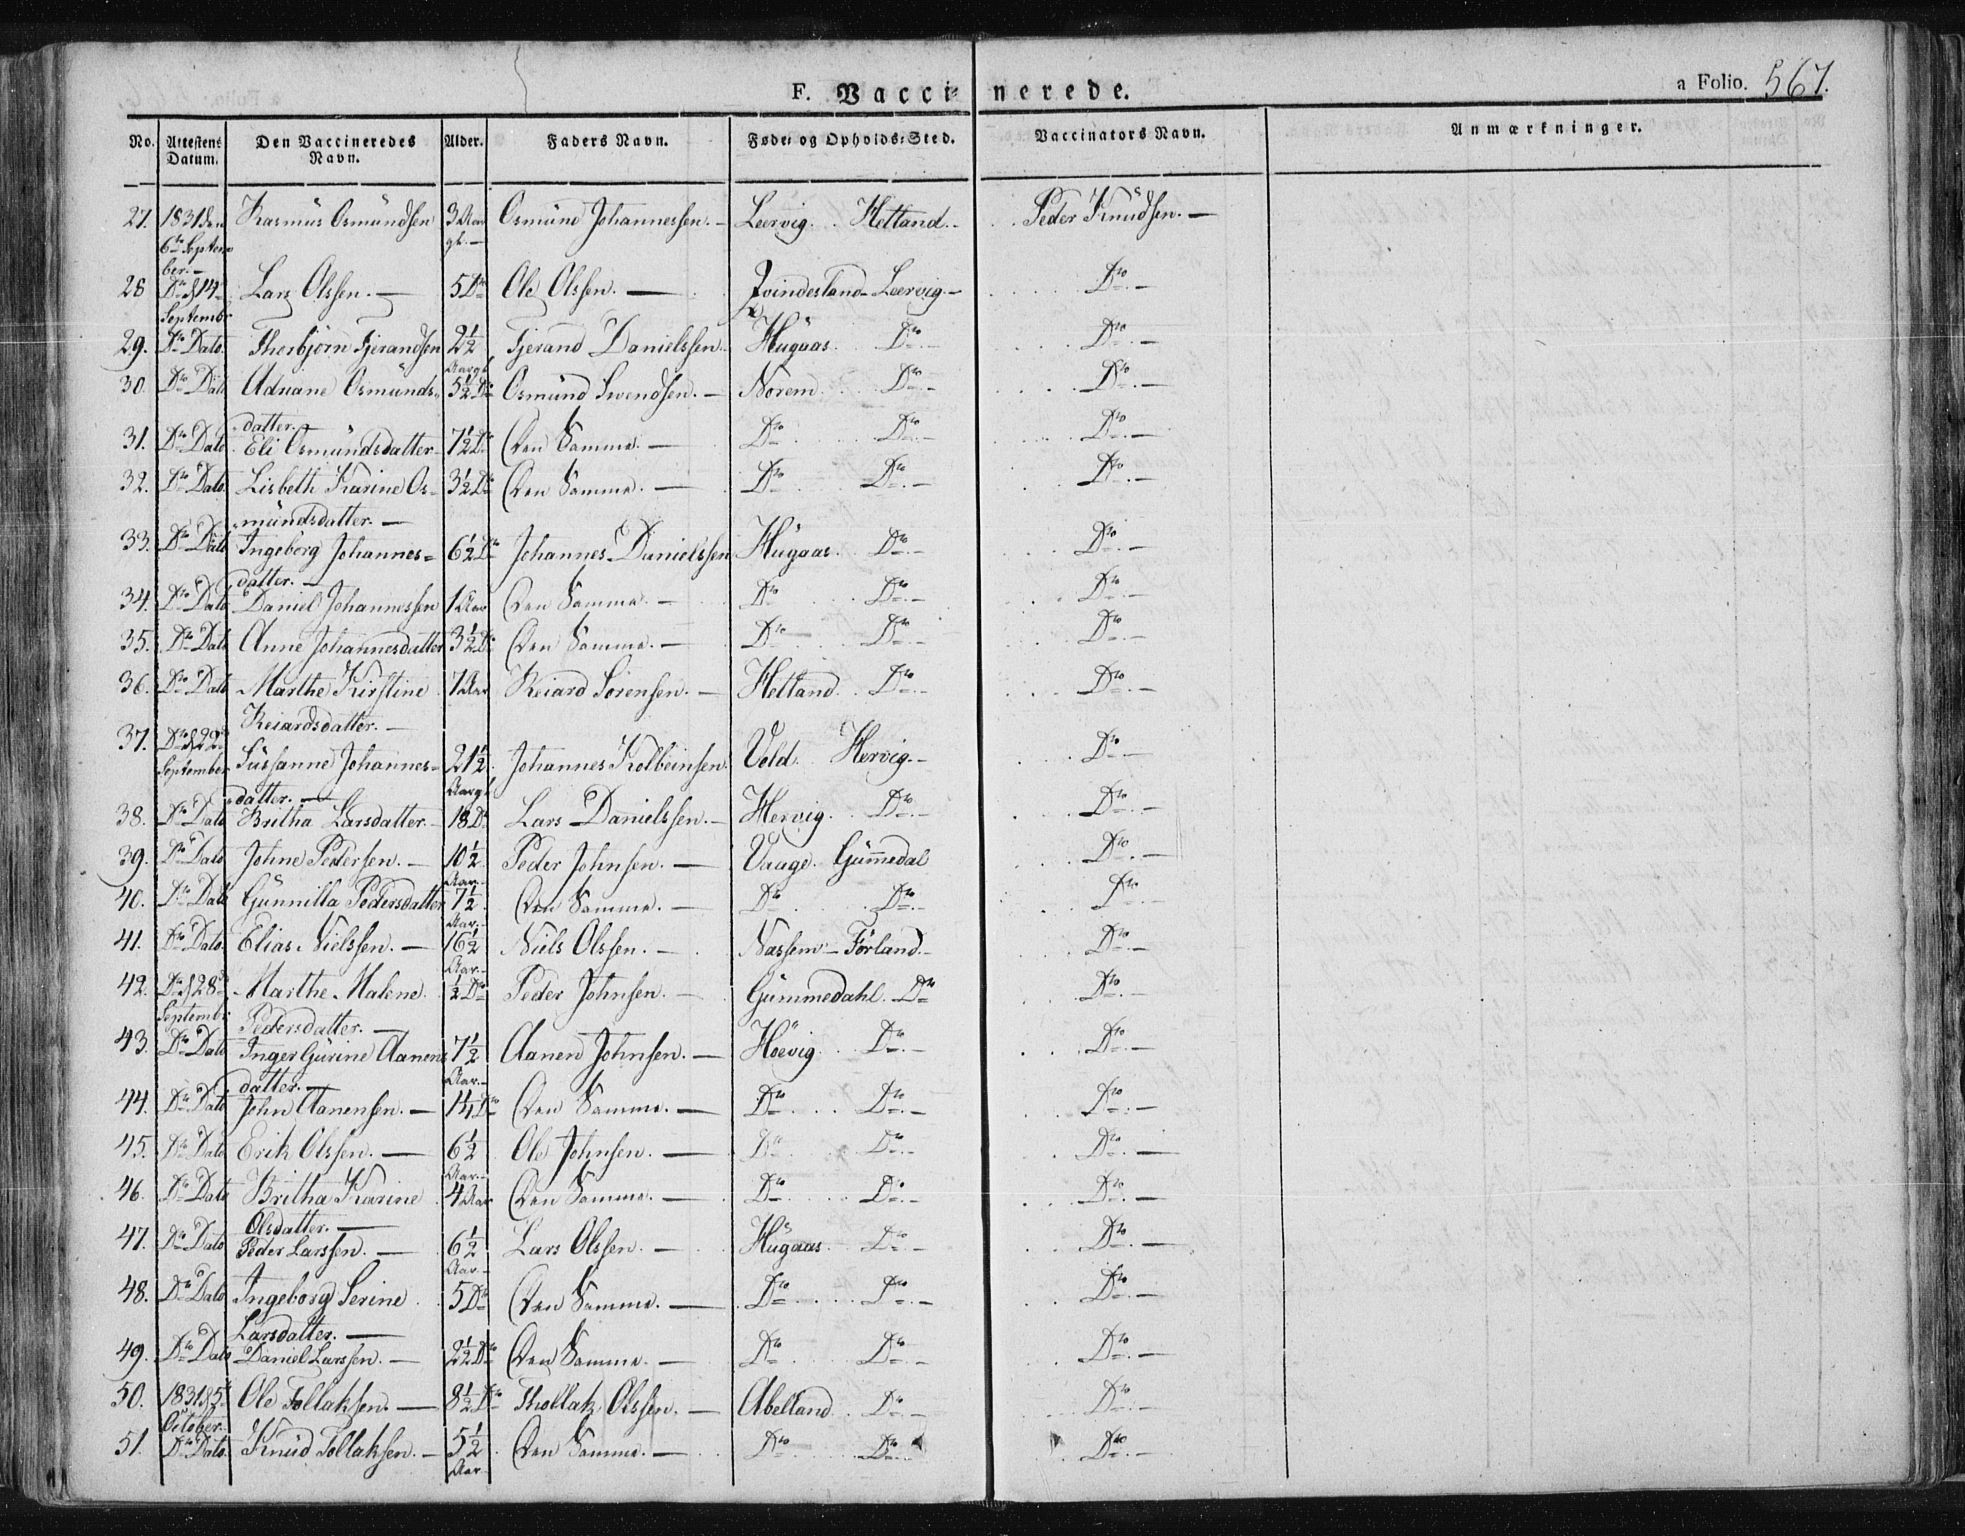 F. Vaccinerede.
a Folio. 567.
No. Attestens Datum. Den Vaccineredes Navn. Alder. Faders Navn. Føde- og Opholds-Sted. Vaccinators Navn. Anmærkninger.
27. 1831 den Rasmüs Osmündsen 3 Aar Osmünd Johannessen. — Leervig. Hetland. Peder Knüdsen. —
6te Septem gl. —
ber. —
28 Do d 14de Lars Olssen. — 5 Do Ole Olssen. — Leervig. — Do. —
Septembr
29. Do Dato. Thorbjörn Tjerandsen 2½ Tjerand Danielssen. Hügaas. Do. — Do. —
Aargl
30. Do Dato Adriane Osmünds- 5½ Do Osmünd Svendsen. — Norem. Do. — Do. —
datter. —
31. Do Dato Eli Osmündsdatter 7½ Do Den Samme. — Do. Do. — Do. —
32. Do Dato. Lisbeth Karine Os- 3½ Do Den Samme. — Do. Do. — Do. —
mündsdatter. —
33. Do Dato Ingeborg Johannes- 6½ Do Johannes Danielssen Hügaas. Do. — Do. —
datter. —
34. Do Dato Daniel Johannessen 1 Aar Den Samme. — Do. Do. — Do. —
35. Do Dato Anne Johannesdatter 3½ Do Den Samme. — Do. Do. — Do. —
36. Do Dato Marthe Kirstine 7 Aar Reiard Sörensen. — Hetland. Do. — Do. —
Reiardsdatter. —
37. Do d 22de Süssanne Johannes- 21½ Johannes Kolbeinsen. Vold. Hervig. — Do. —
September Aargl
datter. —
38. Do Dato Britha Larsdatter. 18 Do Lars Danielssen. — Hervig. Do. — Do. —
39. Do Dato Johne Pedersen. — 10½ Peder Johnsen. — Vaage. Gümmedal Do. —
Aar. —
40. Do Dato Günnilla Pedersdatter 7½ Den Samme. — Do. Do. — Do. —
Aar. —
41. Do Dato. Elias Nielssen. — 16½ Niels Olssen. — Nassem — Förland. Do. —
Aar. —
42. Do d 28de Marthe Malene ½ Do Peder Johnsen. — Gümmedahl. Do Do. —
Septembr Pedersdatter. —
43. Do Dato Inger Gürine Aanens 7½ Aanen Johnsen. — Höevig. Do. — Do. —
datter. — Aar. —
44. Do Dato John Aanensen. — 1¼ Do Den Samme. — Do. Do. — Do. —
45. Do Dato Erik Olssen. — 6½ Ole Johnsen. — Do. Do. — Do. —
Aar. —
46. Do Dato Britha Karine 4 Aar Den Samme. — Do. Do. — Do. —
Olsdatter. —
47. Do Dato Peder Larssen. — 6½ Lars Olssen. — Hügaas. Do. — Do. —
Aar —
48. Do Dato Ingeborg Serine 5 Do Den Samme. — Do. Do. — Do. —
Larsdatter. —
49. Do Dato Daniel Larssen. — 2½ Do Den Samme. — Do. Do. — Do. —
50. 1831 d 5te Ole Tollaksen. — 8½ Do Thollak Olssen. — Abelland. Do. — Do. —
October.
51. Do Dato. Knüd Tollaksen. — 5½ Den Samme. — Do. Do. Do. —
Aar